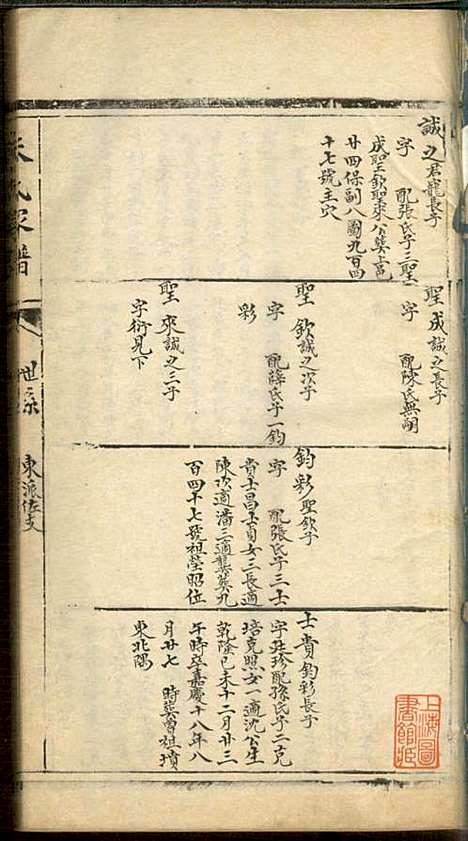 誠之君龍長子
字　配張氏子三聖
成聖欽聖來公葬上邑
廿四保副八圖九百四
十七號主穴
聖成誠之長子
字　配陳氏無嗣
聖欽誠之次子
字　配薛氏子一鈞
彩
聖來誠之三子
字衍見下
鈞彩聖欽子
字　配張氏子三士
貴士昌士貞女三長適
陳次適潘三適龔葬九
百四十七號祖塋昭位
士貴鈞彩長子
字廷珍配孫氏子二克
培克照女一適沈公生
乾隆己未十二月廿三
午時卒嘉慶十八年八
月廿七　時葬曾祖墳
東北隅
朱氏家譜
世系
東派伍支
上海圖
書館藏